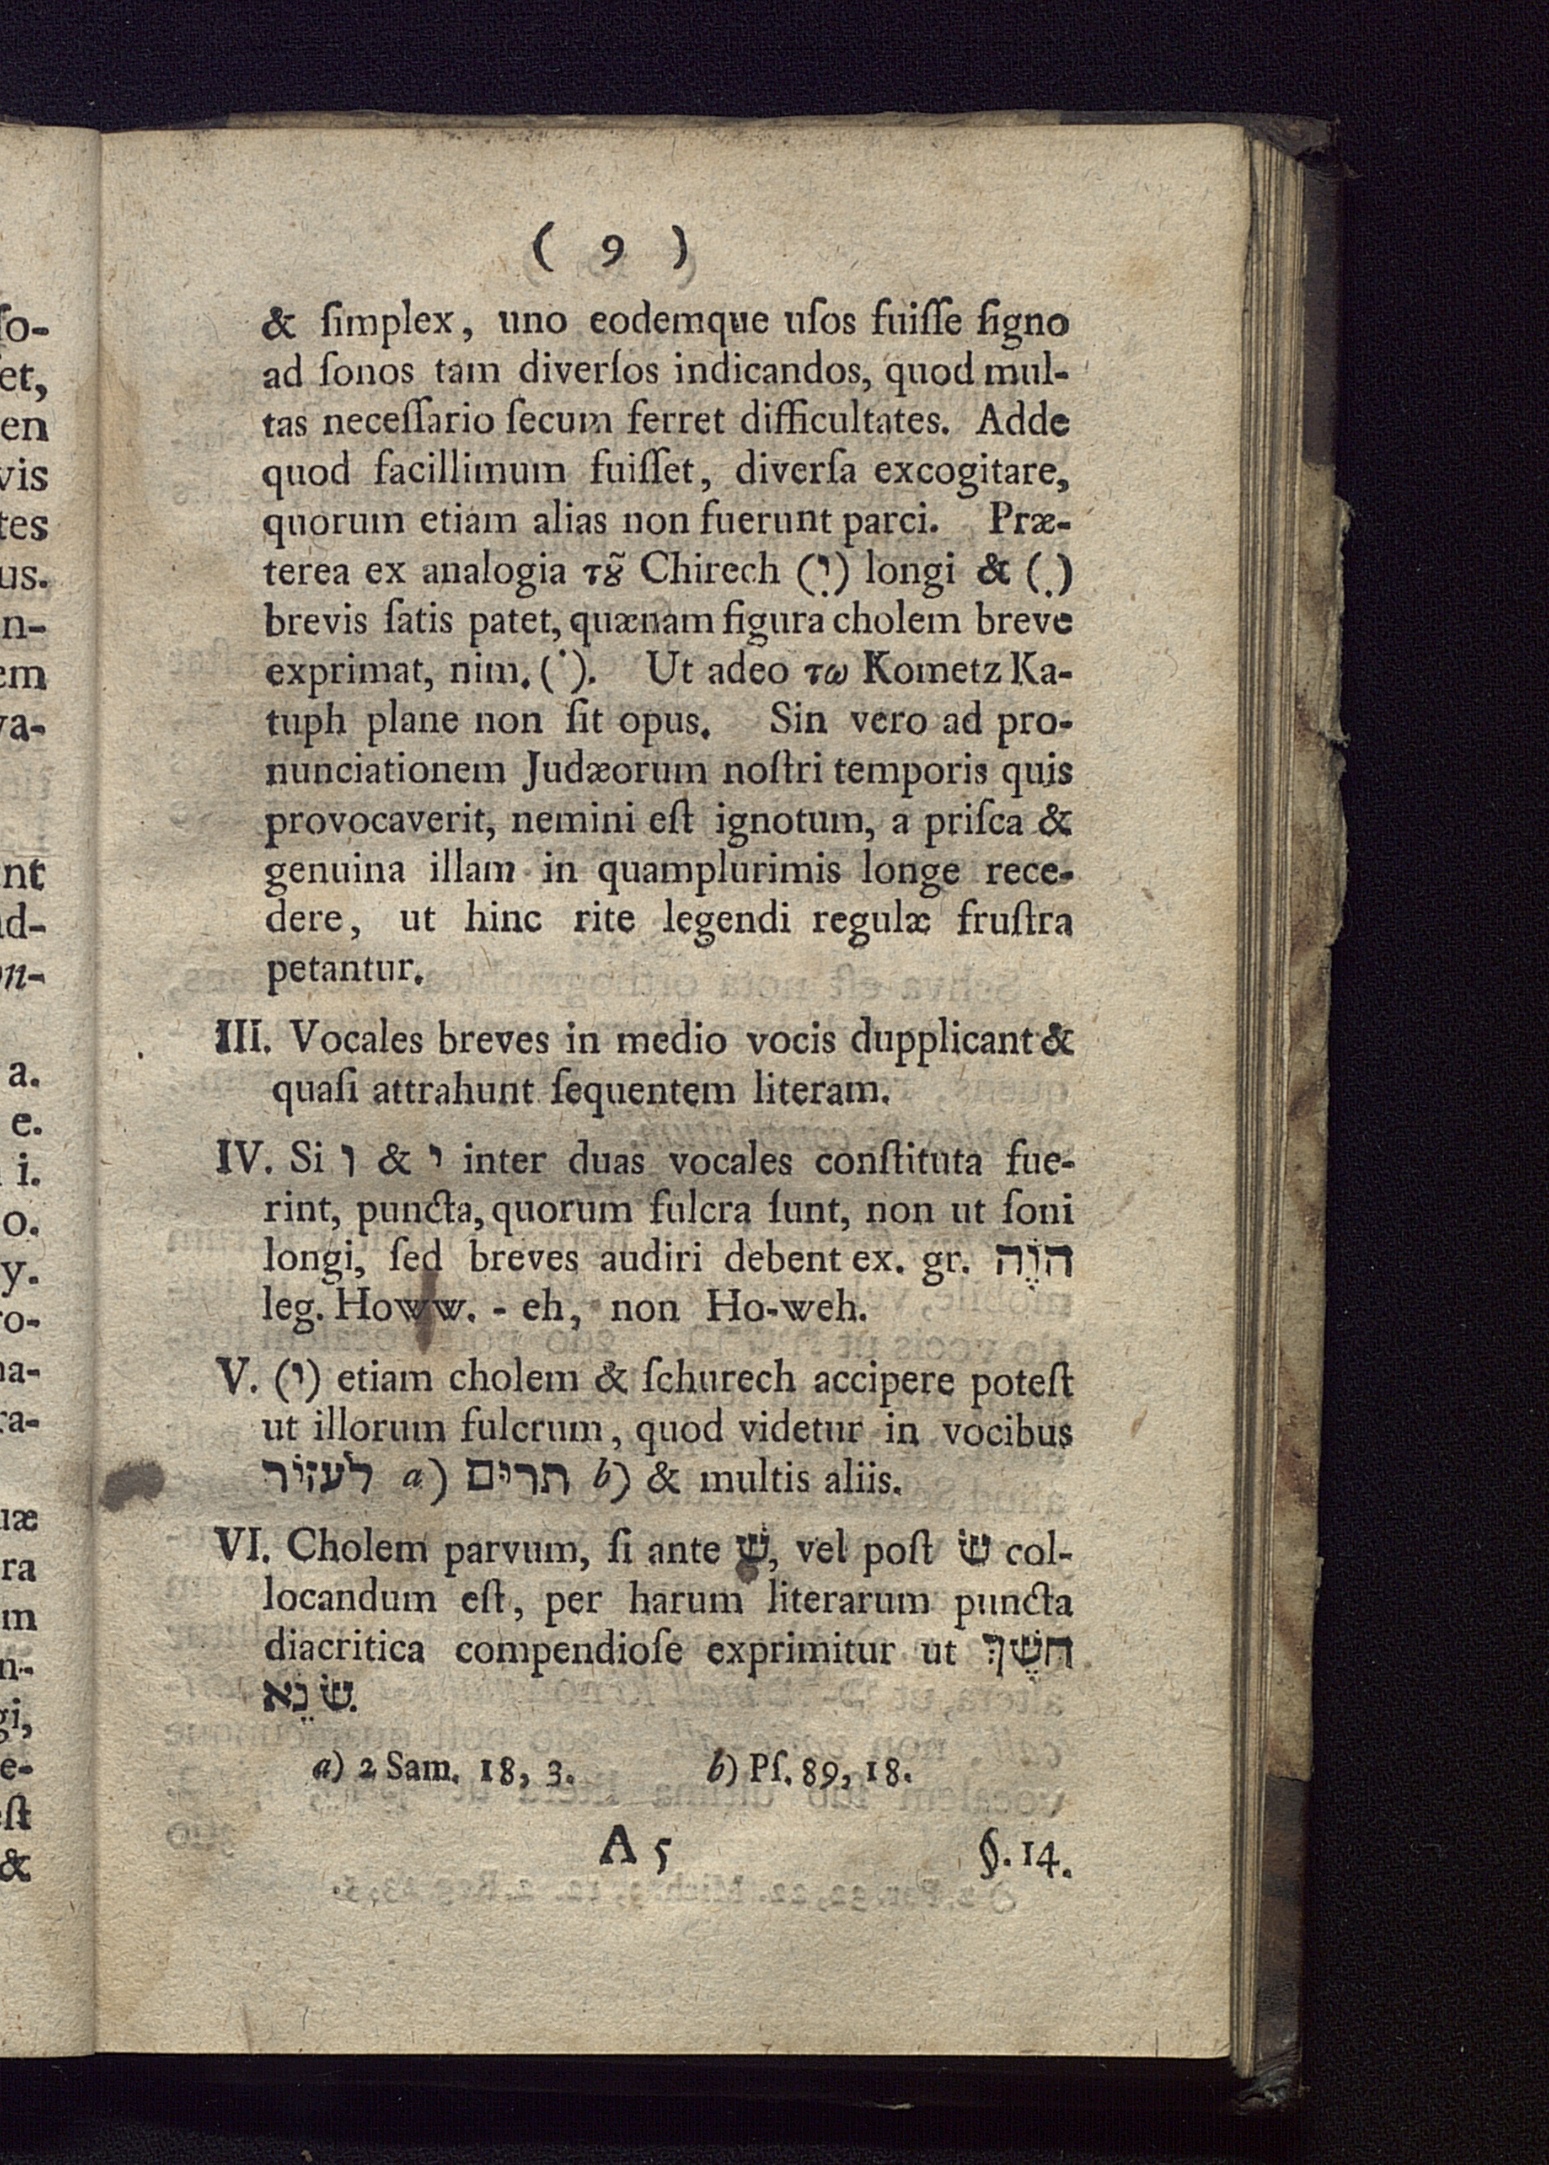 ( 9 )
& ſimplex, uno eodemque uſos fuiſſe ſigno
ad ſonos tam diverſos indicandos, quod mul-
tas neceſſario ſecum ferret difficultates. Adde
quod facillimum fuiſſet, diverſa excogitare,
quorum etiam alias non fuerunt parci. Præ-
terea ex analogia τȣ͂ Chirech (יִ) longi & (ִ)
brevis ſatis patet, quænam figura cholem breve
exprimat, nim. (ֹ). Ut adeo τω Kometz Ka-
tuph plane non ſit opus. Sin vero ad pro-
nunciationem Judæorum noſtri temporis quis
provocaverit, nemini eſt ignotum, a priſca &
genuina illam in quamplurimis longe rece-
dere, ut hinc rite legendi regulæ fruſtra
petantur.
III. Vocales breves in medio vocis dupplicant &
quaſi attrahunt ſequentem literam.
IV. Si ו & י inter duas vocales conſtituta fue-
rint, puncta, quorum fulcra ſunt, non ut ſoni
longi, ſed breves audiri debent ex. gr. הֹוֶה
leg. Howw. - eh, non Ho-weh.
V. (י) etiam cholem & ſchurech accipere poteſt
ut illorum fulcrum, quod videtur in vocibus
לעזיר a) תרים b) & multis aliis.
VI. Cholem parvum, ſi ante שׁ, vel poſt שׂ col-
locandum eſt, per harum literarum puncta
diacritica compendioſe exprimitur ut חשֶׁךְ
שׂנֵא.
a) 2 Sam. 18, 3. b) Pſ. 89, 18.
A 5 §. 14.
ſo-
et,
en
vis
tes
us.
n-
em
va-
nt
d-
n-
a.
e.
i.
o.
y.
ro-
na-
ra-
uæ
ra
m
n-
gi,
e-
eſt
&